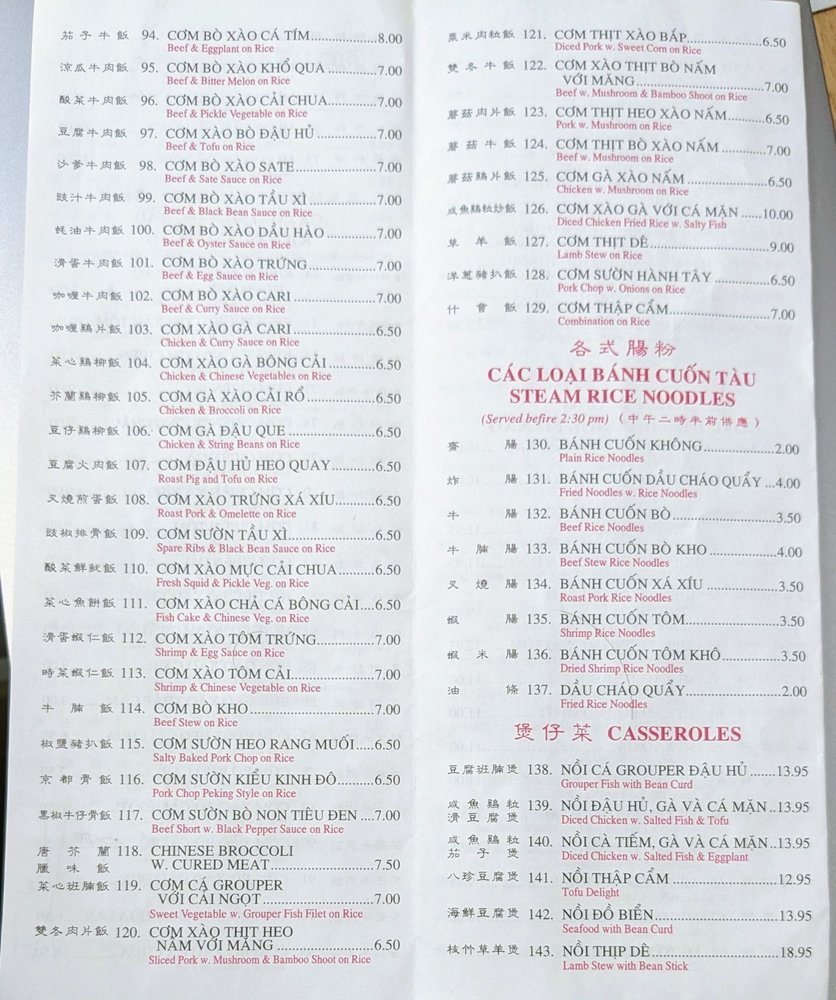 茄子牛飯 94. CƠM BÒ XÀO CÁ TÍM...............8.00
Beef & Eggplant on Rice
涼瓜牛肉飯 95. CƠM BÒ XÀO KHỔ QUA ............7.00
Beef & Bitter Melon on Rice
酸菜牛肉飯 96. CƠM BÒ XÀO CẢI CHUA..........7.00
Beef & Pickle Vegetable on Rice
豆腐牛肉飯 97. CƠM XÀO BÒ ĐẬU HỦ .............7.00
Beef & Tofu on Rice
沙爹牛肉飯 98. CƠM BÒ XÀO SATE ..................7.00
Beef & Sate Sauce on Rice
豉汁牛肉飯 99. CƠM BÒ XÀO TẦU XÌ ..............7.00
Beef & Black Bean Sauce on Rice
蚝油牛肉飯 100. CƠM BÒ XÀO DẦU HÀO...........7.00
Beef & Oyster Sauce on Rice
滑蛋牛肉飯 101. CƠM BÒ XÀO TRỨNG...............7.00
Beef & Egg Sauce on Rice
咖喱牛肉飯 102. CƠM BÒ XÀO CARI .................7.00
Beef & Curry Sauce on Rice
咖喱鷄片飯 103. CƠM XÀO GÀ CARI .................6.50
Chicken & Curry Sauce on Rice
菜心鷄柳飯 104. CƠM XÀO GÀ BÔNG CẢI..........6.50
Chicken & Chinese Vegetables on Rice
芥蘭鷄柳飯 105. CƠM GÀ XÀO CẢI RỔ ..............6.50
Chicken & Broccoli on Rice
豆仔鷄柳飯 106. CƠM GÀ ĐẬU QUE ..................6.50
Chicken & String Beans on Rice
豆腐火肉飯 107. CƠM ĐẬU HỦ HEO QUAY.........6.50
Roast Pig and Tofu on Rice
叉燒煎蛋飯 108. CƠM XÀO TRỨNG XÁ XÍU.......6.50
Roast Pork & Omelette on Rice
豉椒排骨飯 109. CƠM SƯỜN TẦU XÌ...................6.50
Spare Ribs & Black Bean Sauce on Rice
酸菜鮮魷飯 110. CƠM XÀO MỰC CẢI CHUA.......6.50
Fresh Squid & Pickle Veg. on Rice
菜心魚餅飯 111. CƠM XÀO CHẢ CÁ BÔNG CẢI...6.50
Fish Cake & Chinese Veg. on Rice
滑蛋蝦仁飯 112. CƠM XÀO TÔM TRỨNG............7.00
Shrimp & Egg Sauce on Rice
時菜蝦仁飯 113. CƠM XÀO TÔM CẢI.................7.00
Shrimp & Chinese Vegetable on Rice
牛腩飯 114. CƠM BÒ KHO ..........................7.00
Beef Stew on Rice
椒鹽豬扒飯 115. CƠM SƯỜN HEO RANG MUỐI.....6.50
Salty Baked Pork Chop on Rice
京都骨飯 116. CƠM SƯỜN KIỂU KINH ĐÔ........6.50
Pork Chop Peking Style on Rice
黑椒牛仔骨飯 117. CƠM SƯỜN BÒ NON TIÊU ĐEN ....7.00
Beef Short w. Black Pepper Sauce on Rice
唐芥蘭 118. CHINESE BROCCOLI
臘味飯 W. CURED MEAT ......................7.50
菜心班腩飯 119. CƠM CÁ GROUPER
VỚI CẢI NGỌT ........................7.00
Sweet Vegetable w. Grouper Fish Filet on Rice
雙冬肉片飯 120. CƠM XÀO THỊT HEO
NẤM VỚI MĂNG .....................6.50
Sliced Pork w. Mushroom & Bamboo Shoot on Rice
粟米肉粒飯 121. CƠM THỊT XÀO BẮP..................6.50
Diced Pork w. Sweet Corn on Rice
雙冬牛飯 122. CƠM XÀO THỊT BÒ NẤM
VỚI MĂNG.............................7.00
Beef w. Mushroom & Bamboo Shoot on Rice
蘑菇肉片飯 123. CƠM THỊT HEO XÀO NẤM.........6.50
Pork w. Mushroom on Rice
蘑菇牛飯 124. CƠM THỊT BÒ XÀO NẤM ..........7.00
Beef w. Mushroom on Rice
蘑菇鷄片飯 125. CƠM GÀ XÀO NẤM..................6.50
Chicken w. Mushroom on Rice
咸魚鷄粒炒飯 126. CƠM XÀO GÀ VỚI CÁ MẶN ......10.00
Diced Chicken Fried Rice w. Salty Fish
草羊飯 127. CƠM THỊT DÊ..........................9.00
Lamb Stew on Rice
洋蔥豬扒飯 128. CƠM SƯỜN HÀNH TÂY .............6.50
Pork Chop w. Onions on Rice
什會飯 129. CƠM THẬP CẨM......................7.00
Combination on Rice
各式腸粉
CÁC LOẠI BÁNH CUỐN TÀU
STEAM RICE NOODLES
(Served befire 2:30 pm) (中午二時半前供應)
齋腸 130. BÁNH CUỐN KHÔNG................2.00
Plain Rice Noodles
炸腸 131. BÁNH CUỐN DẦU CHÁO QUẨY ...4.00
Fried Noodles w. Rice Noodles
牛腸 132. BÁNH CUỐN BÒ.......................3.50
Beef Rice Noodles
牛腩腸 133. BÁNH CUỐN BÒ KHO ................4.00
Beef Stew Rice Noodles
叉燒腸 134. BÁNH CUỐN XÁ XÍU .................3.50
Roast Pork Rice Noodles
蝦腸 135. BÁNH CUỐN TÔM.....................3.50
Shrimp Rice Noodles
蝦米腸 136. BÁNH CUỐN TÔM KHÔ..............3.50
Dried Shrimp Rice Noodles
油條 137. DẦU CHÁO QUẨY.....................2.00
Fried Rice Noodles
煲仔菜 CASSEROLES
豆腐班腩煲 138. NỒI CÁ GROUPER ĐẬU HỦ .......13.95
Grouper Fish with Bean Curd
咸魚鷄粒 139. NỒI ĐẬU HỦ, GÀ VÀ CÁ MẶN ..13.95
滑豆腐煲 Diced Chicken w. Salted Fish & Tofu
咸魚鷄粒 140. NỒI CÀ TIẾM, GÀ VÀ CÁ MẶN ..13.95
茄子煲 Diced Chicken w. Salted Fish & Eggplant
八珍豆腐煲 141. NỒI THẬP CẨM ......................12.95
Tofu Delight
海鮮豆腐煲 142. NỒI ĐỒ BIỂN.........................13.95
Seafood with Bean Curd
枝竹草羊煲 143. NỒI THỊP DÊ..........................18.95
Lamb Stew with Bean Stick